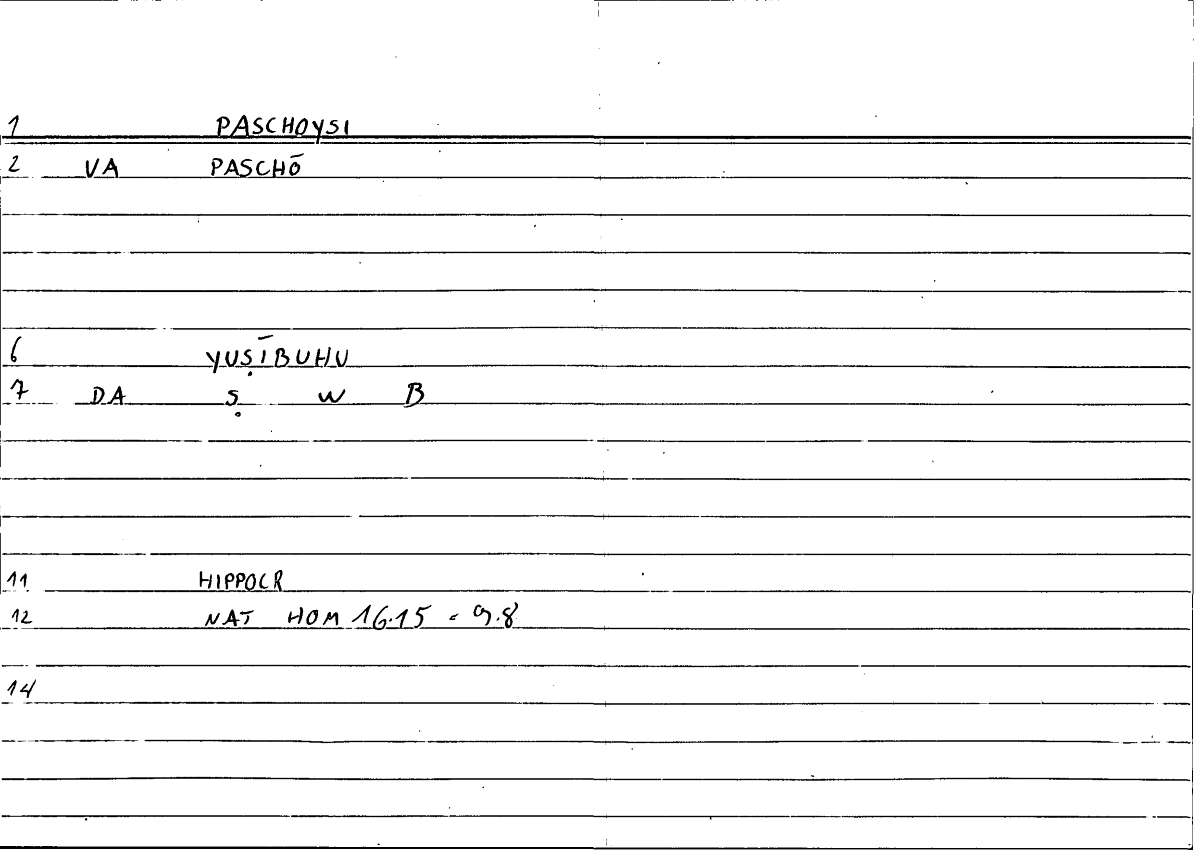 1 PASCHOYSI
2 VA PASCHŌ
6 YUṢĪBUHU
7 DA Ṣ W B
11 HIPPOCR
12 NAT HOM 16.15 = 9.8
14